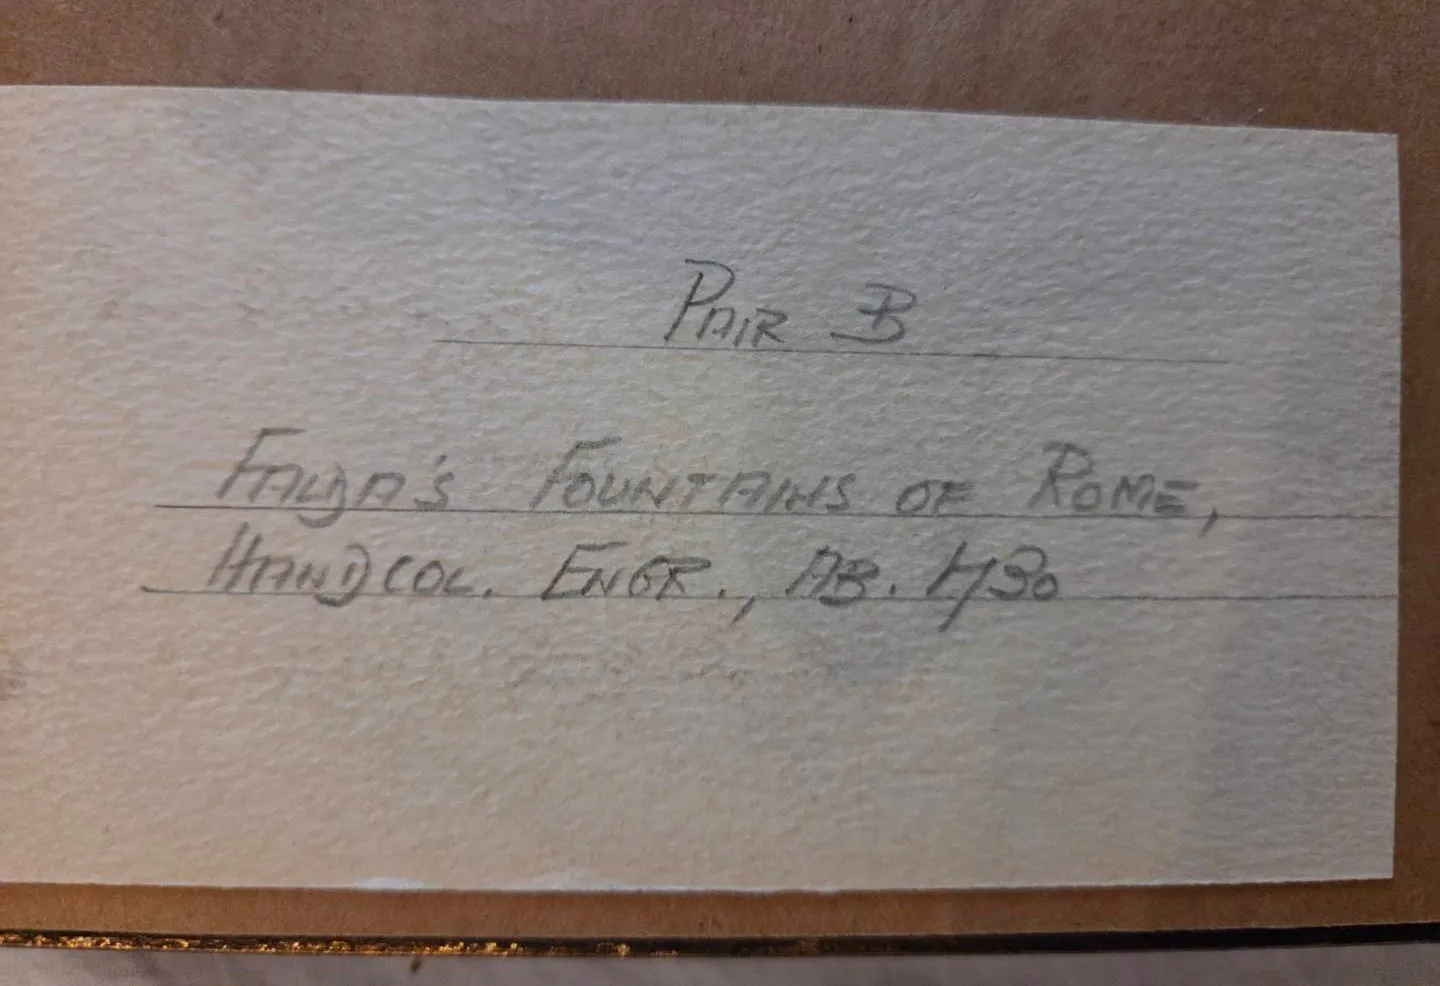 PAIR B
FALDA'S FOUNTAINS OF ROME,
HANDCOL. ENGR., AB. 1730